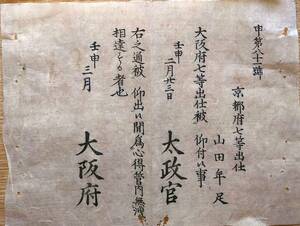 申第八十一号
京都府七等出仕
山田年足
大阪府七等出仕被 仰付候事
壬申 二月廿三日
太政官
右之通被 仰出候間為心得管内無洩
相達もの者也
壬申 三月
大阪府